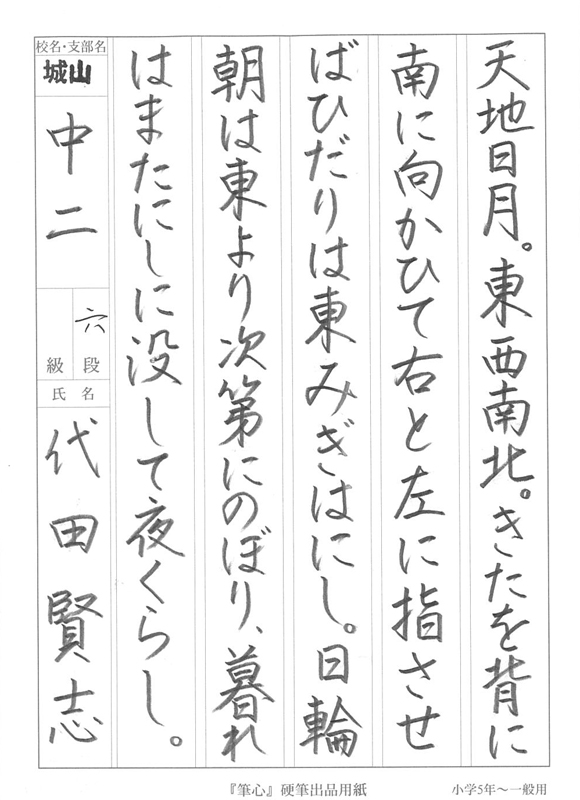 天地日月。東西南北。きたを背に
南に向かひて右と左に指させ
ばひだりは東みぎはにし。日輪
朝は東より次第にのぼり、暮れ
はまたにしに没して夜くらし。
校名・支部名
城山
中二
六
級 段
氏名
代田賢志
『筆心』硬筆出品用紙
小学5年～一般用